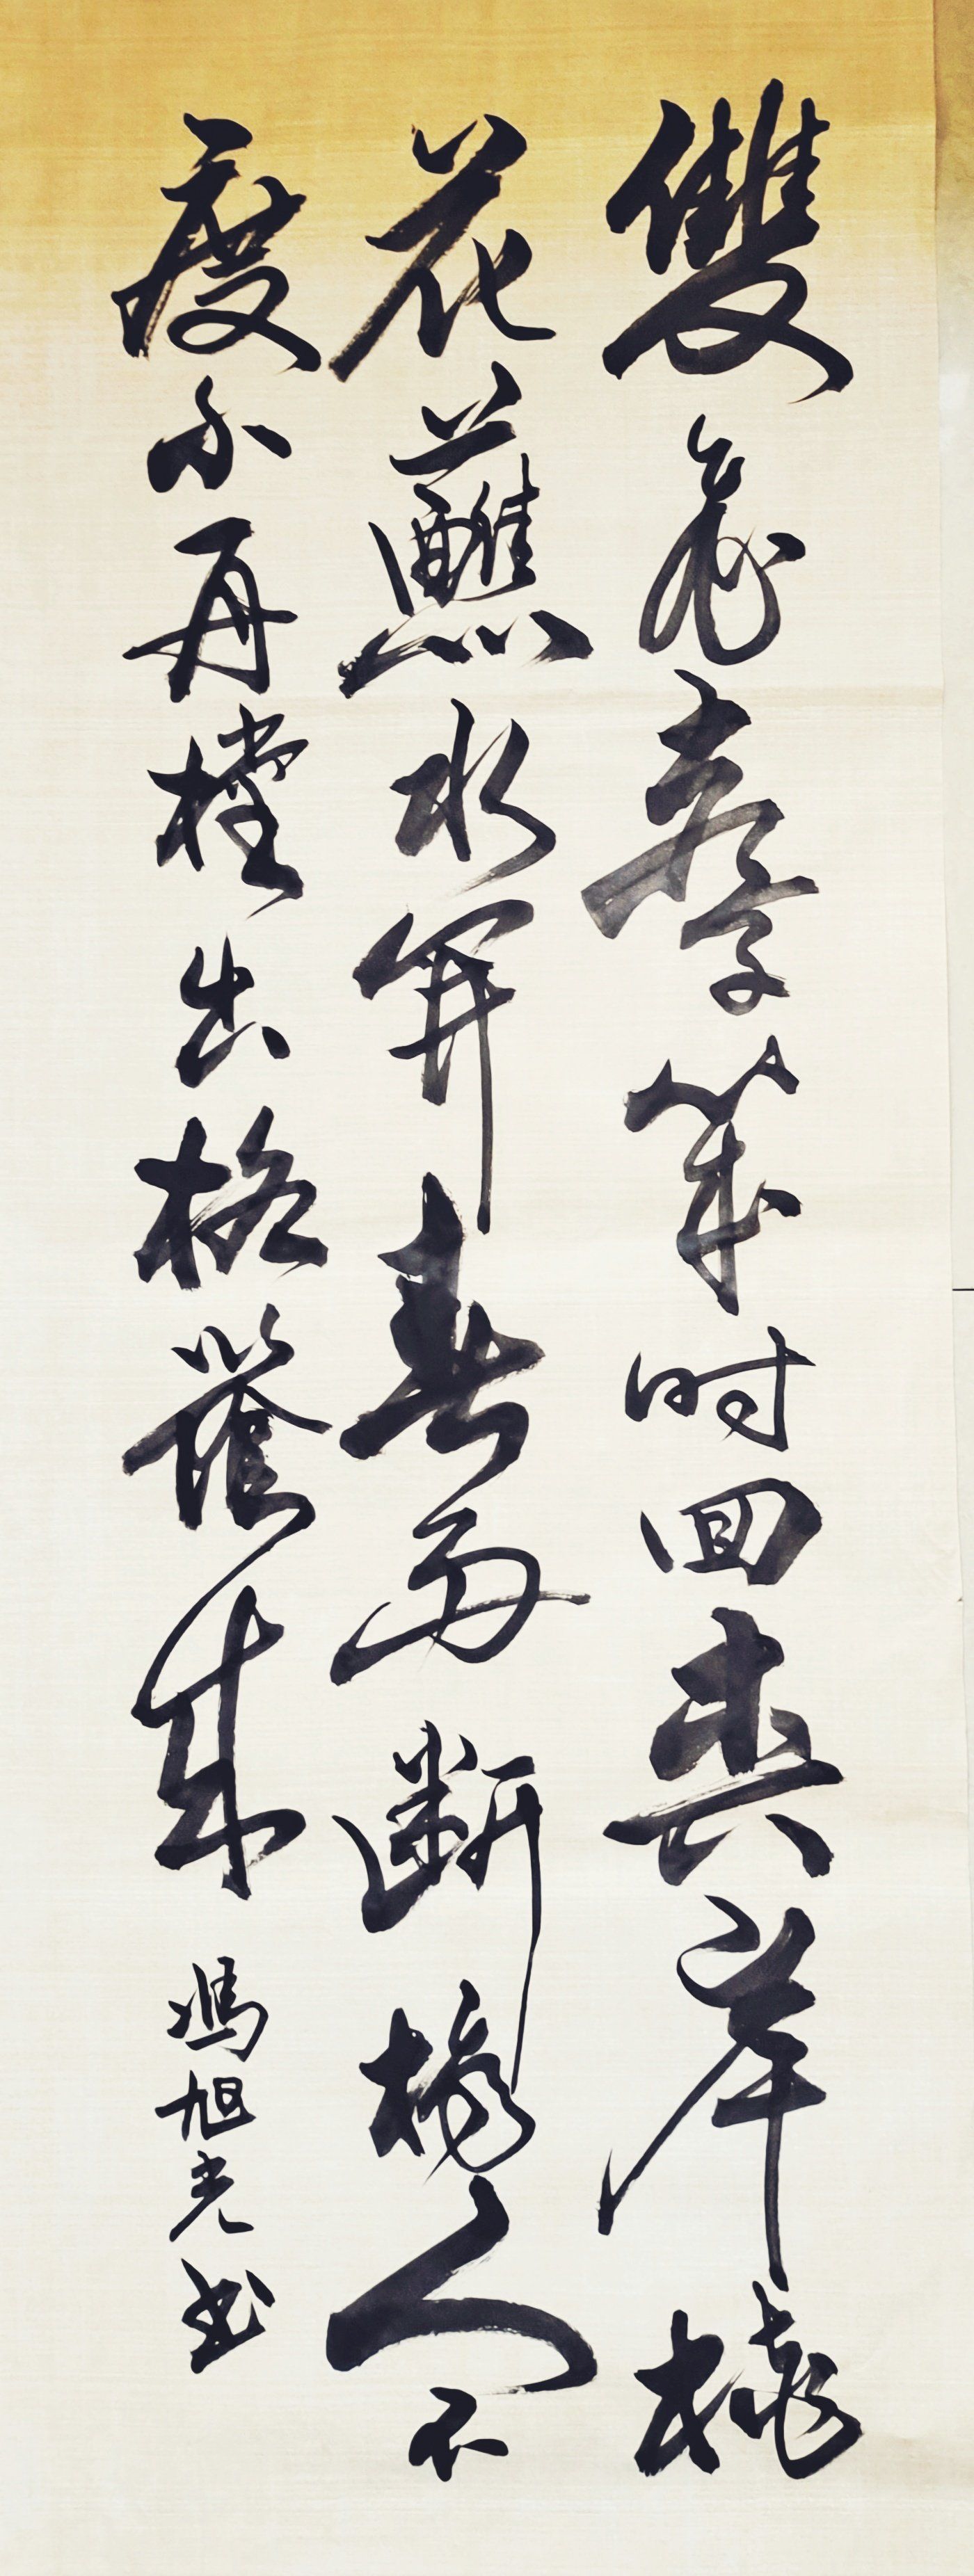 雙飛燕子幾时回夾岸桃
花蘸水開春雨斷橋人不
度小舟撐出柳蔭來
馮旭光书